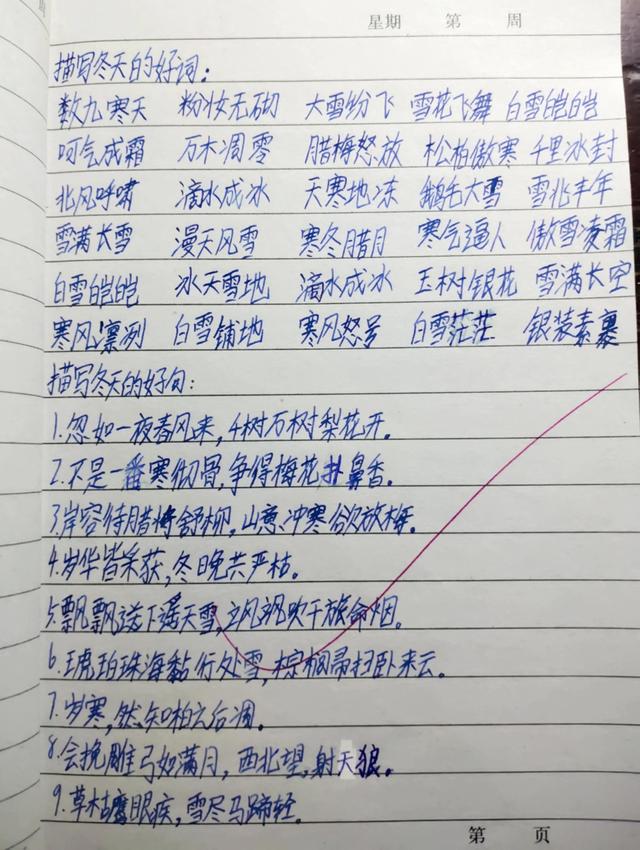 星期 第 周
描写冬天的好词：
数九寒天 粉妆无砌 大雪纷飞 雪花飞舞 白雪皑皑
呵气成霜 万木凋零 腊梅怒放 松柏傲寒 千里冰封
北风呼啸 滴水成冰 天寒地冻 鹅毛大雪 雪兆丰年
雪满长雪 漫天风雪 寒冬腊月 寒气逼人 傲雪凌霜
白雪皑皑 冰天雪地 滴水成冰 玉树银花 雪满长空
寒风凛冽 白雪铺地 寒风怒号 白雪茫茫 银装素裹
描写冬天的好句：
1.忽如一夜春风来，4树万树梨花开。
2.不是一番寒彻骨，争得梅花扑鼻香。
3.岸容待腊将舒柳，山意冲寒欲放梅。
4.岁华皆采获，冬晚共严枯。
5.飘飘送下遥天雪，飒吹干旅命烟。
6.琥珀珠海黏行处雪，棕榈帚扫卧来云。
7.岁寒，然知柏后凋。
8.会挽雕弓如满月，西北望，射天狼。
9.草枯鹰眼疾，雪尽马蹄轻。
第 页